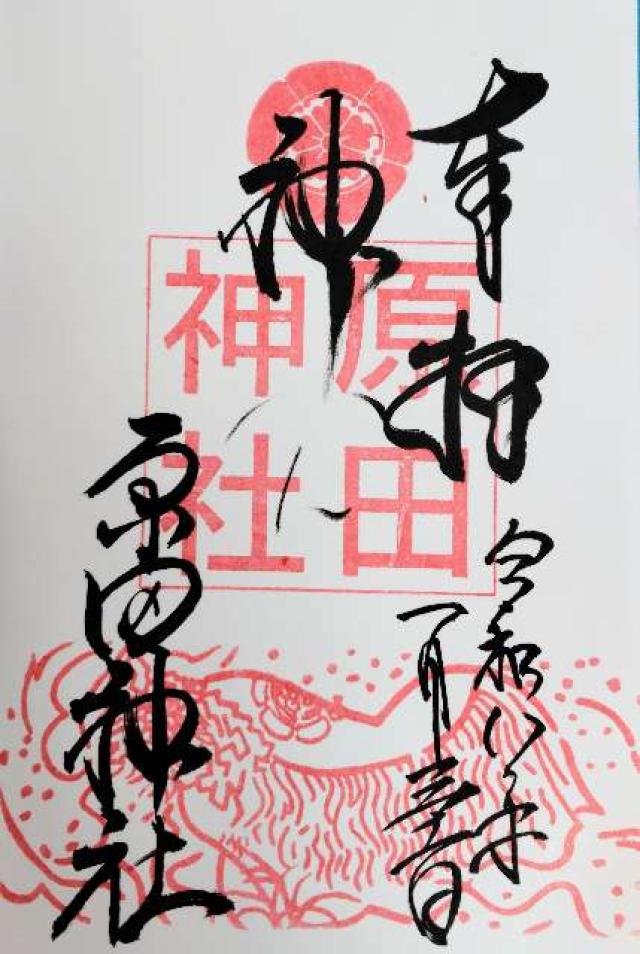 奉拝
令和八年
一月三十一日
神
原田
神社
原田神社